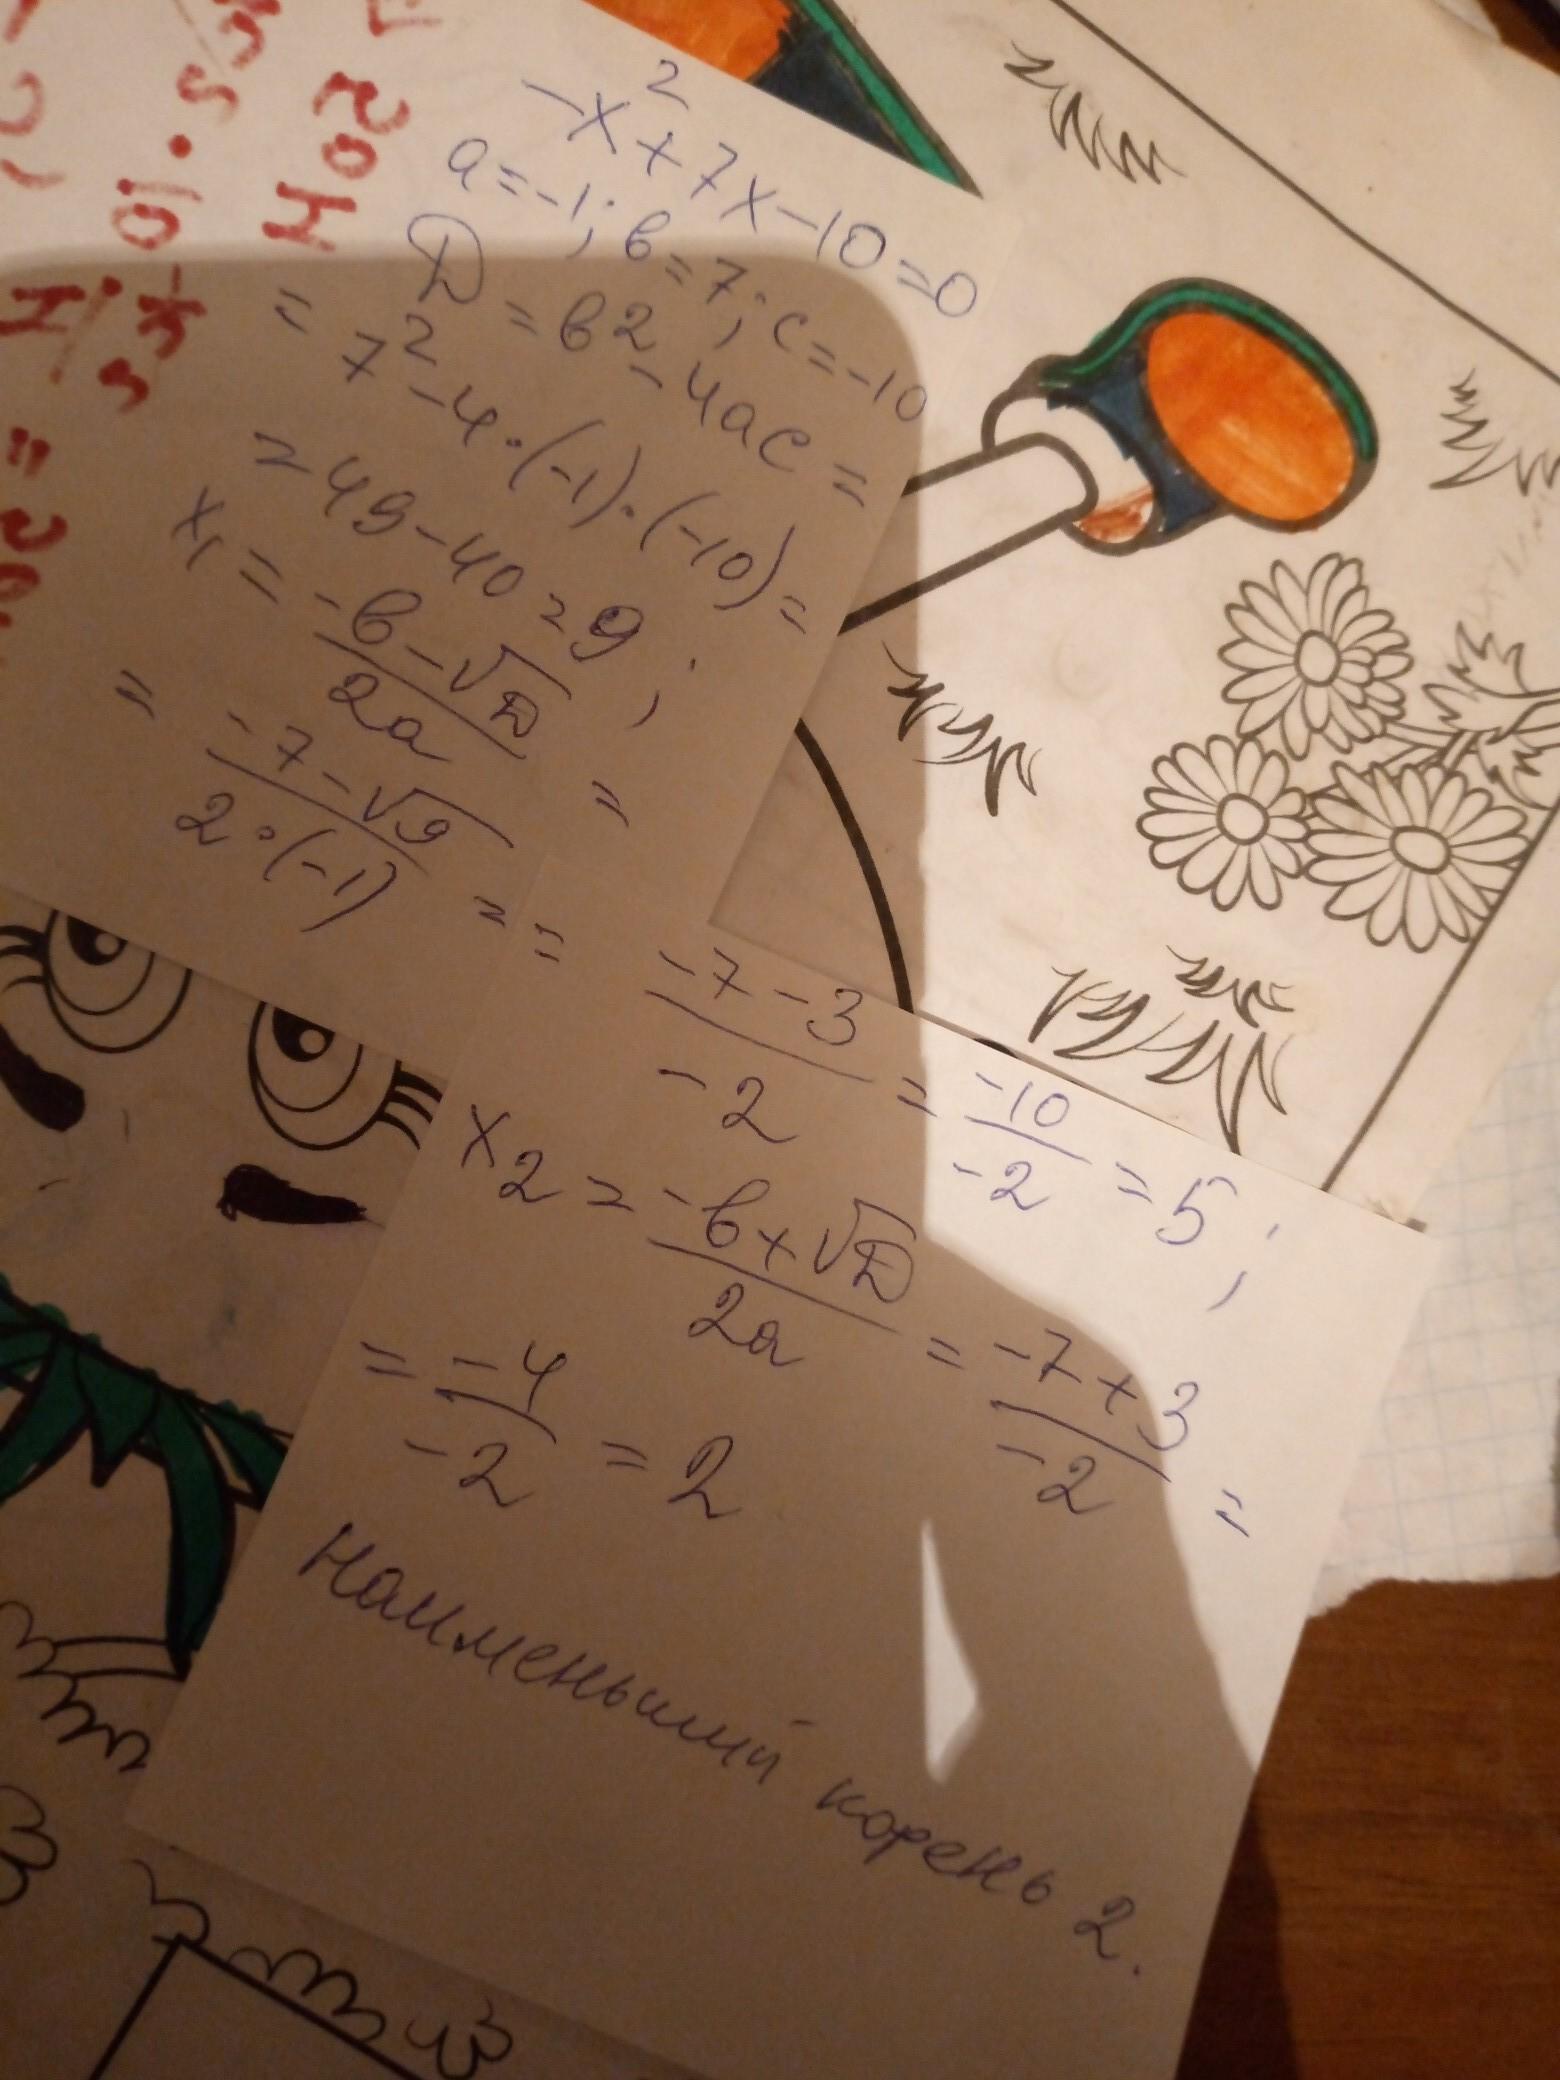 -x² + 7x - 10 = 0
a = -1; в = 7; с = -10
D = в2 - 4ac =
= 7² - 4·(-1)·(-10) =
= 49 - 40 = 9;
x₁ = (-в - √D)/(2a) =
= (-7 - √9)/(2·(-1)) =
= (-7 - 3)/(-2) = (-10)/(-2) = 5;
x2 = (-в + √D)/(2a) = (-7 + 3)/(-2) =
= (-4)/(-2) = 2
наименьший корень 2.